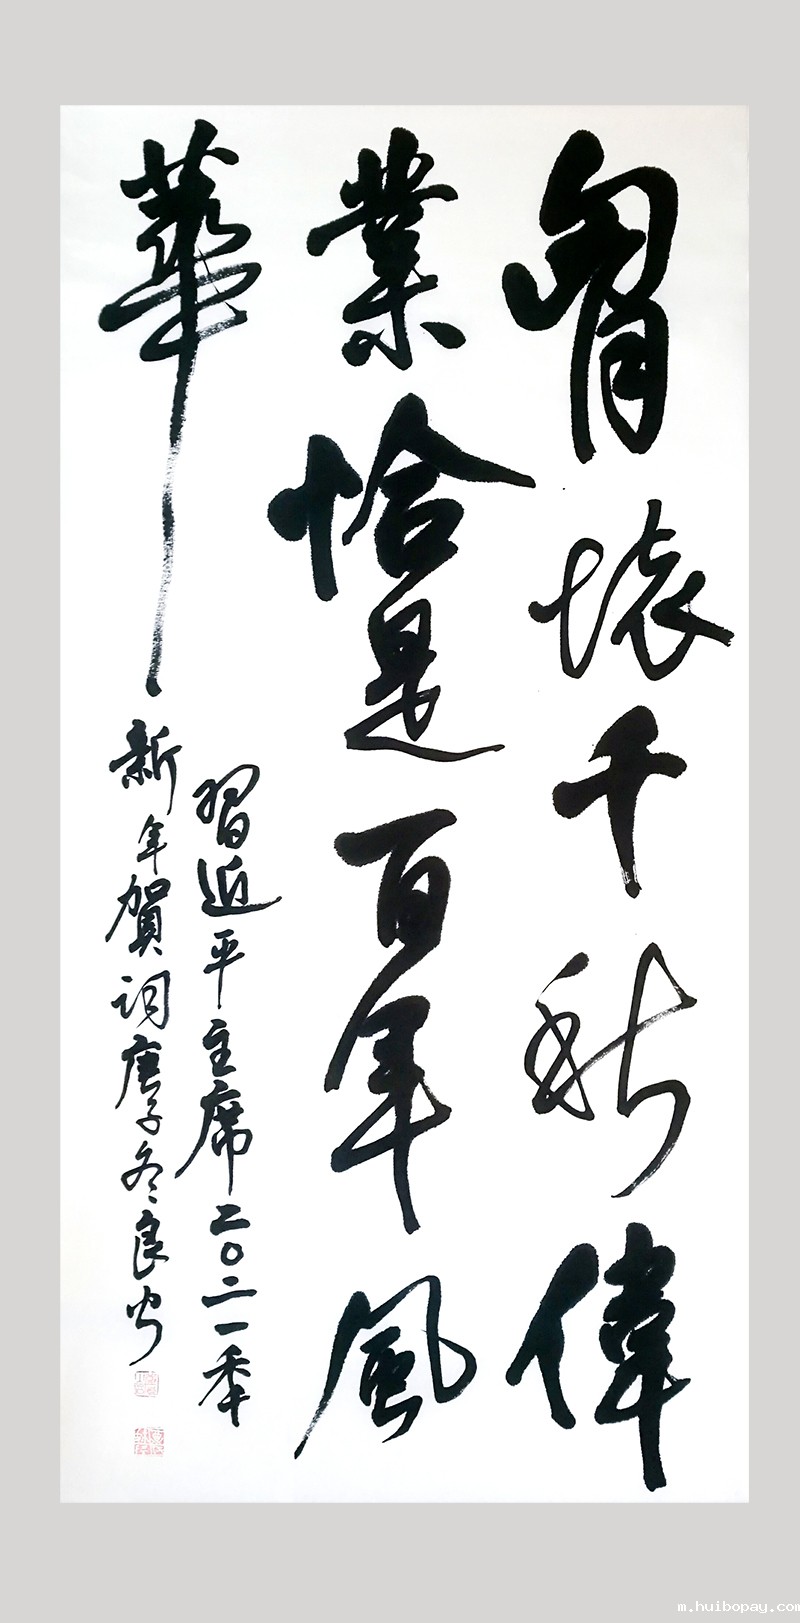 胷懐千秋偉
業恰是百年風
華
習近平主席二〇二一年
新年賀词庚子冬良
m.huibopay.com